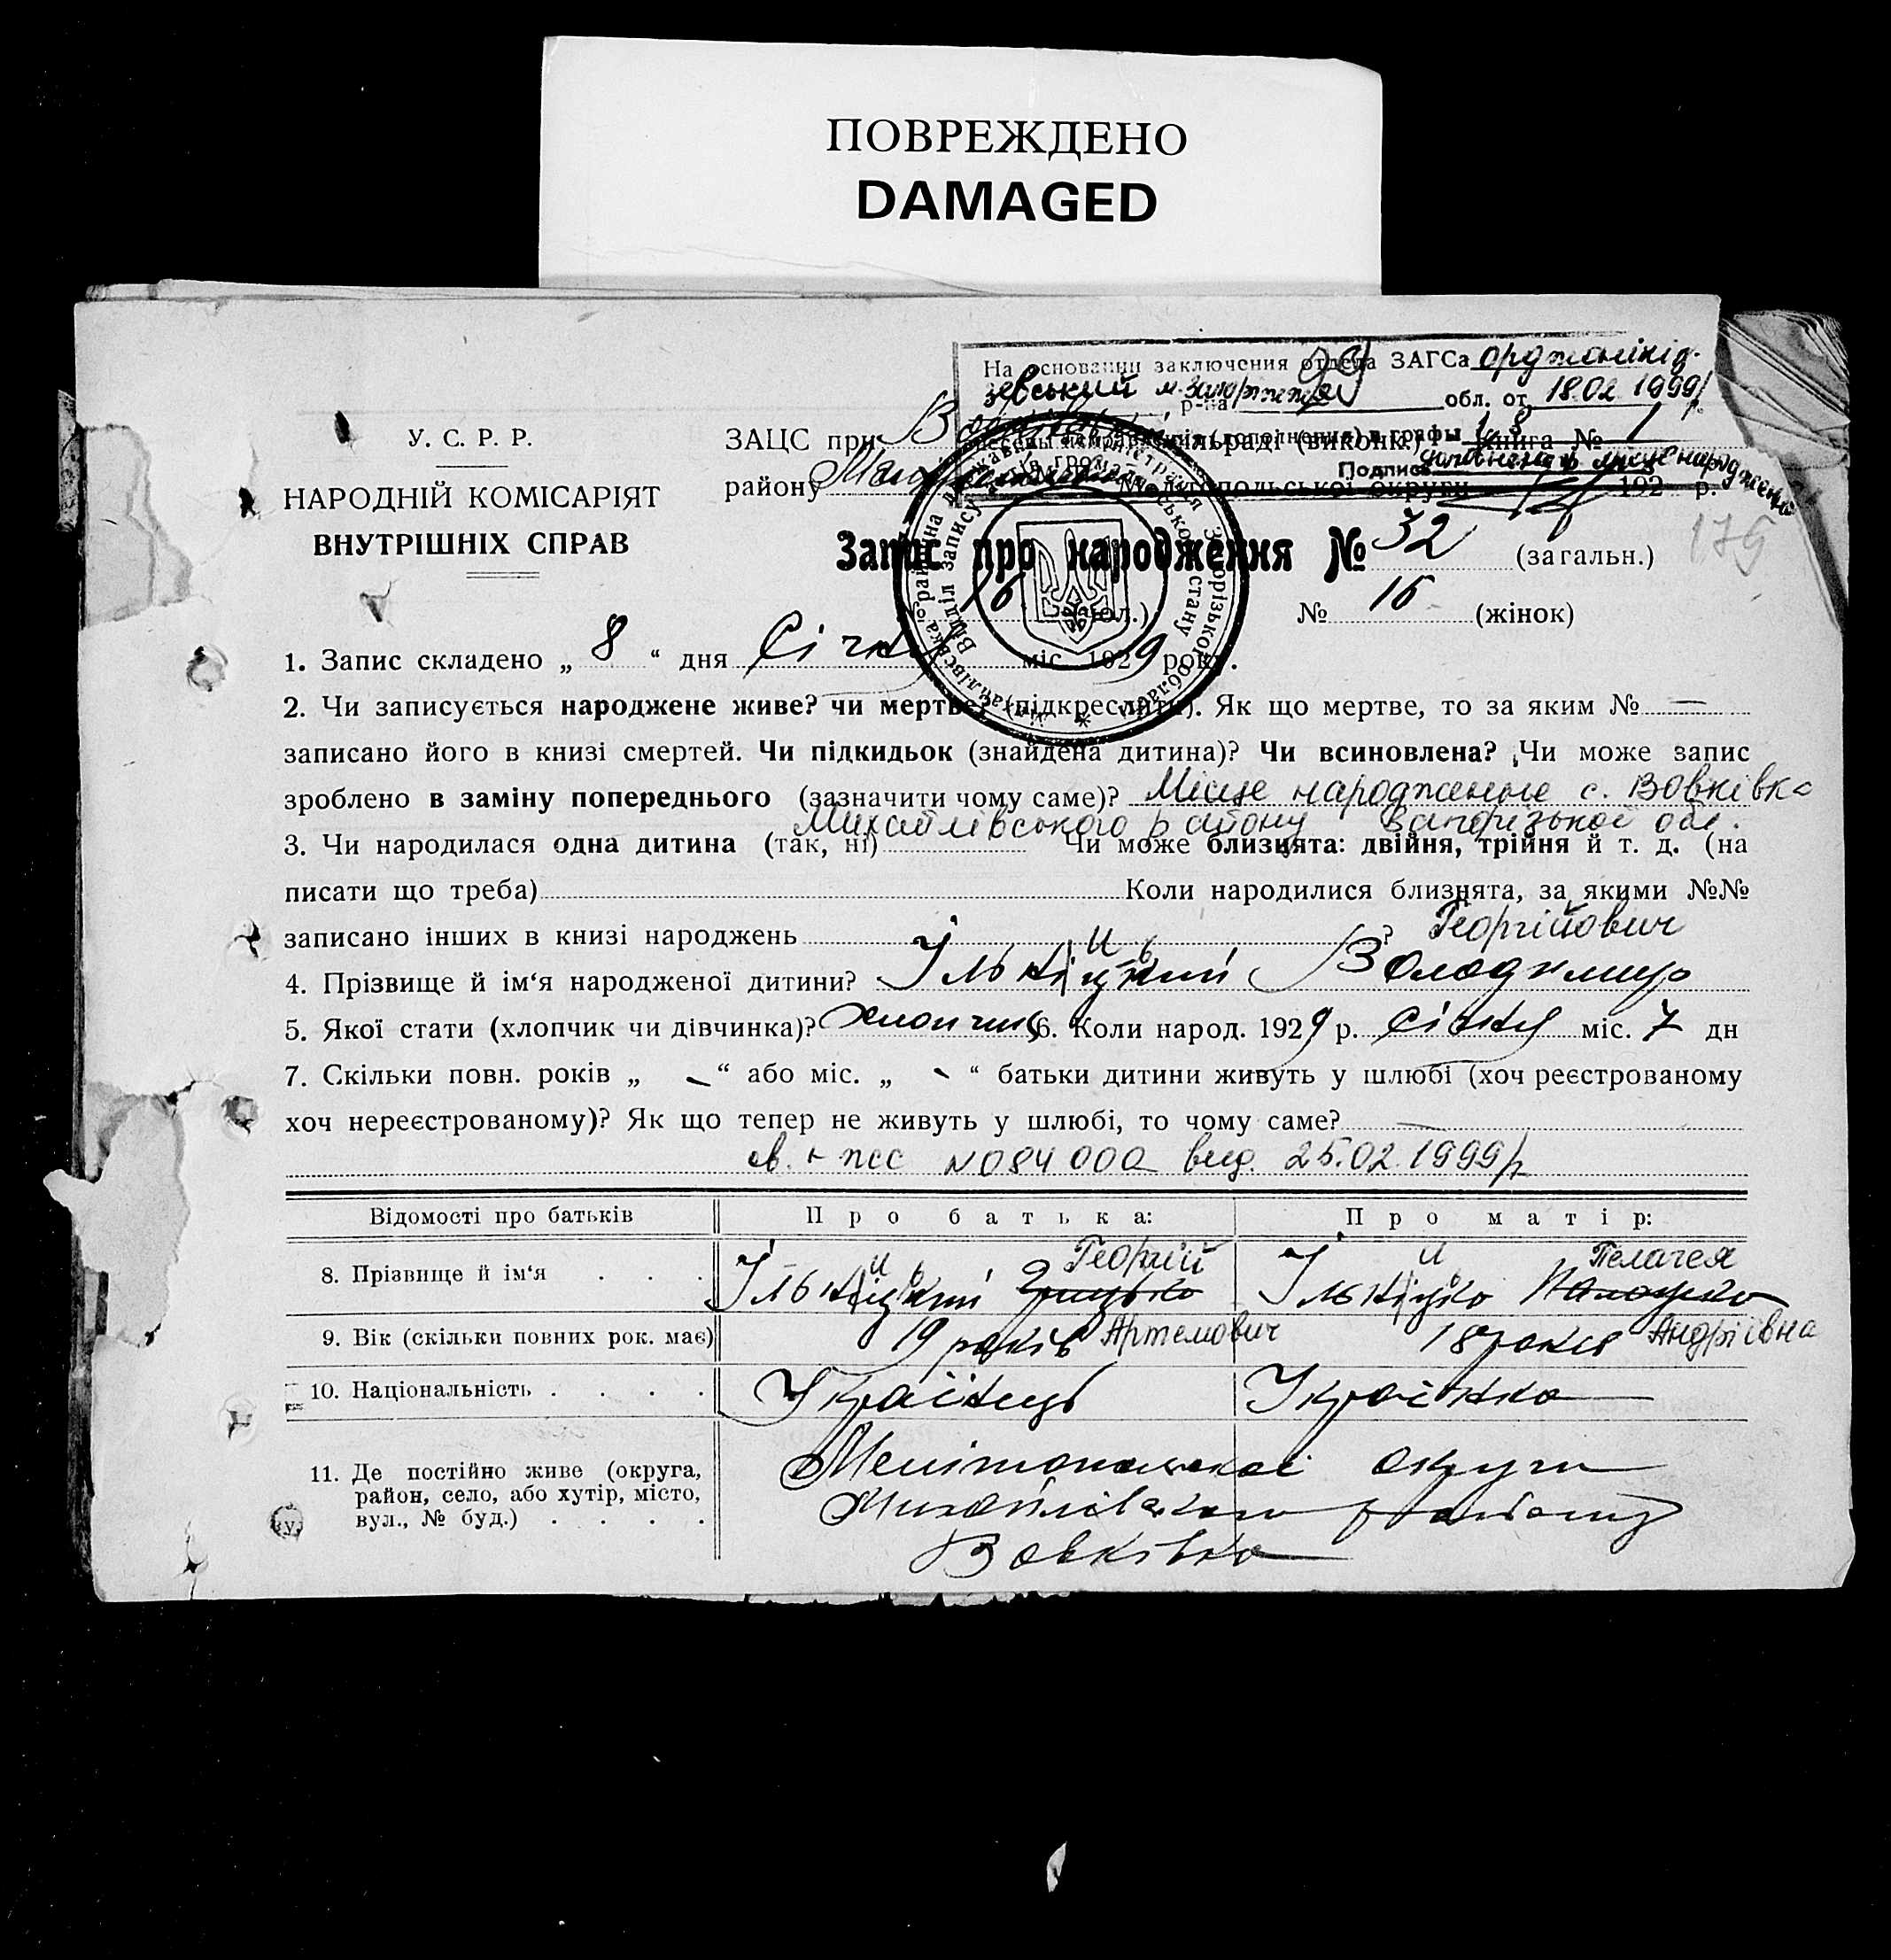 ПОВРЕЖДЕНО
DAMAGED
На основании заключения отдела ЗАГСа орджонікід-
зевський м. Запоріжжя р-на обл. от 18.02 1999р.
У. С. Р. Р.
НАРОДНІЙ КОМІСАРІЯТ
ВНУТРІШНІХ СПРАВ
ЗАЦС при сільраді (виконк.) Книга № 1
(дополнения) в графы 1, 8
Подпись доповнено місце народження
району Мелітопольської округи 192 р.
175
Запис про народження № 32 (загальн.)
16 (чол.) № 16 (жінок)
1. Запис складено „ 8 “ дня Січня міс. 1929 року.
2. Чи записується народжене живе? чи мертве? (підкреслити). Як що мертве, то за яким № —
записано його в книзі смертей. Чи підкидьок (знайдена дитина)? Чи всиновлена? Чи може запис
зроблено в заміну попереднього (зазначити чому саме)? Місце народження с. Вовківка
Михайлівського району Запорізької обл.
3. Чи народилася одна дитина (так, ні) Чи може близнята: двійня, трійня й т. д. (на
писати що треба) Коли народилися близнята, за якими №№
записано інших в книзі народжень ? Георгійович
4. Прізвище й ім‘я народженої дитини? Ільніцький Володимир
5. Якої стати (хлопчик чи дівчинка)? хлопчик 6. Коли народ. 1929 р. січня міс. 7 дн
7. Скільки повн. років „ – “ або міс. „ – “ батьки дитини живуть у шлюбі (хоч реєстрованому
хоч нереєстрованому)? Як що тепер не живуть у шлюбі, то чому саме? —
св. N 084000 вид. 25.02.1999р
Відомості про батьків Про батька: Про матір:
Георгій Пелагея
8. Прізвище й ім‘я . . . Ільніцький Грицько Ільніцка
9. Вік (скільки повних рок. має) 19 років Артемович 18 років Андріївна
10. Національність . . . . Українець Українка
11. Де постійно живе (округа,
район, село, або хутір, місто,
вул., № буд.) . . . .
Мелітопольської округи
Михайлівського району
Вовківка
Михайлівська районна державна адміністрація Запорізької області
Відділ запису актів громадянського стану